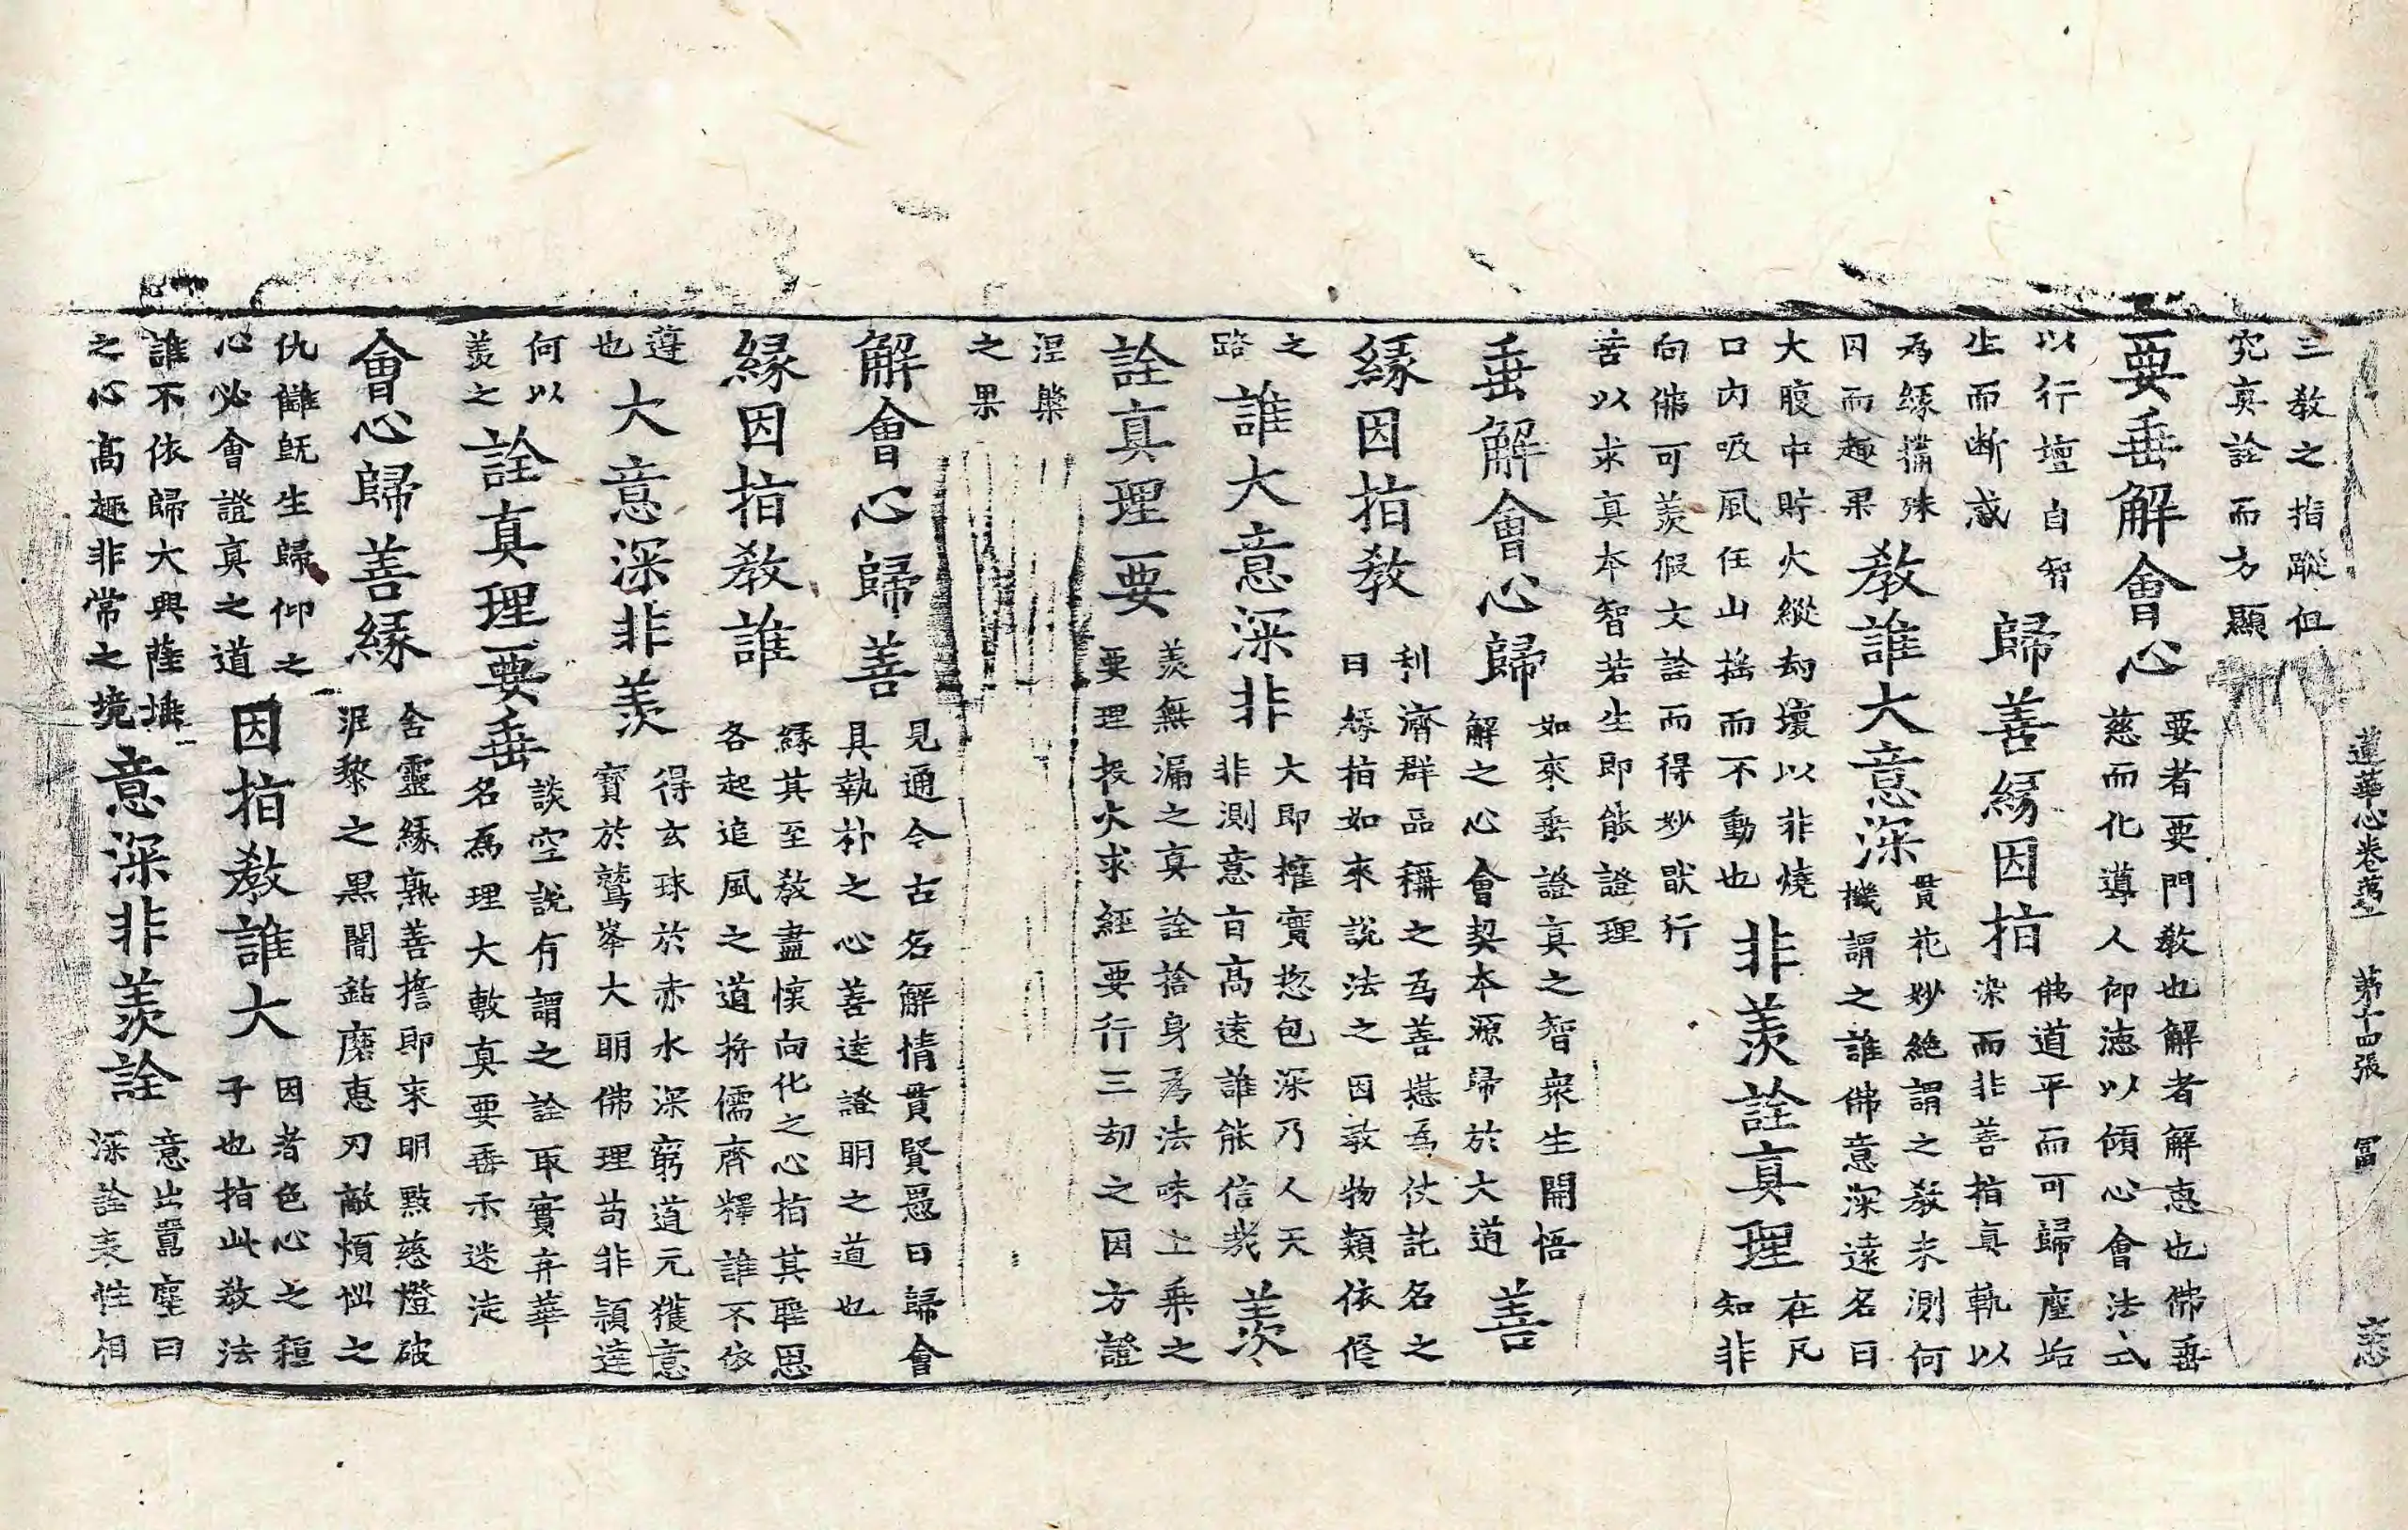 蓮華心卷第一 第十四張 冨
三教之指蹤但
究真詮而方顯
要垂解會心
要者要門教也解者解恵也佛垂
慈而化導人仰徳以傾心會法式
以行壇自智
生而断惑
歸善緣因指
佛道平而可歸塵垢
染而非善指真軌以
為緣搆殊
因而趣果
教誰大意深
貫花妙絶謂之教未測何
機謂之誰佛意深遠名曰
大腹中貯火縱劫壞以非燒
口内吸風任山揺而不動也
非羨詮真理
在凡
知非
向佛可羨假文詮而得妙猒行
苦以求真本智若生即能證理
垂解會心歸
如來垂證真之智衆生開悟
解之心會契本源歸於大道
善
緣因指教
利濟群品稱之為善憑為仗託名之
曰緣指如來說法之因教物類依修
之
路
誰大意深非
大即權實捴包深乃人天
非測意旨高遠誰能信哉
羨
詮真理要
羨無漏之真詮捨身為法味上乘之
要理投火求經要行三劫之因方證
涅槃
之果
解會心歸善
見通今古名解情貫賢愚曰歸會
具執朴之心善逹證明之道也
緣因指教誰
緣其至教盡懷向化之心指其聖恩
各起追風之道將儒齊釋誰不依
遵
也
大意深非羨
得玄珠於赤水深窮道元獲意
寳於鷲峯大明佛理苟非頴達
何以
羨之
詮真理要垂
談空說有謂之詮取實弃華
名為理大教真要垂示迷徒
會心歸善緣
含靈緣熟善擔即來明㸃慈燈破
泥黎之黒闇鈷磨恵刃敵煩惱之
仇讎旣生歸仰之
心必會證真之道
因指教誰大
因者色心之種
子也指此教法
誰不依歸大興薩埵
之心髙趣非常之境
意深非羨詮
意出囂塵曰
深詮表性相